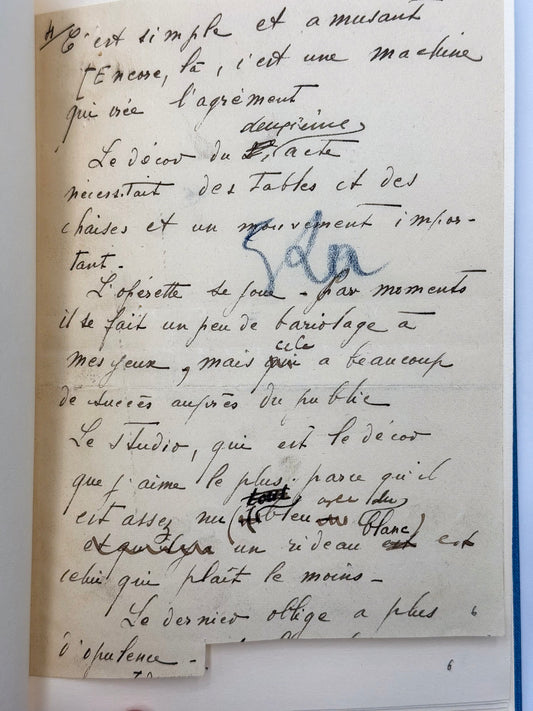 C'est simple et amusant
[Encore, là, c'est une machine
qui crée l'agrément
deuxième
Le décor du acte
nécessitait des tables et des
chaises et un mouvement impor-
tant.
L'opérette se joue - par moments
il se fait un peu de bariolage à
mes yeux, mais qui cela a beaucoup
de succès auprès du public
Le studio, qui est le décor
que j'aime le plus, parce qu'il
tout avec du
est assez nu (bleu blanc)
un rideau est est
celui qui plaît le moins -
Le dernier oblige a plus
d'opulence -
6
6